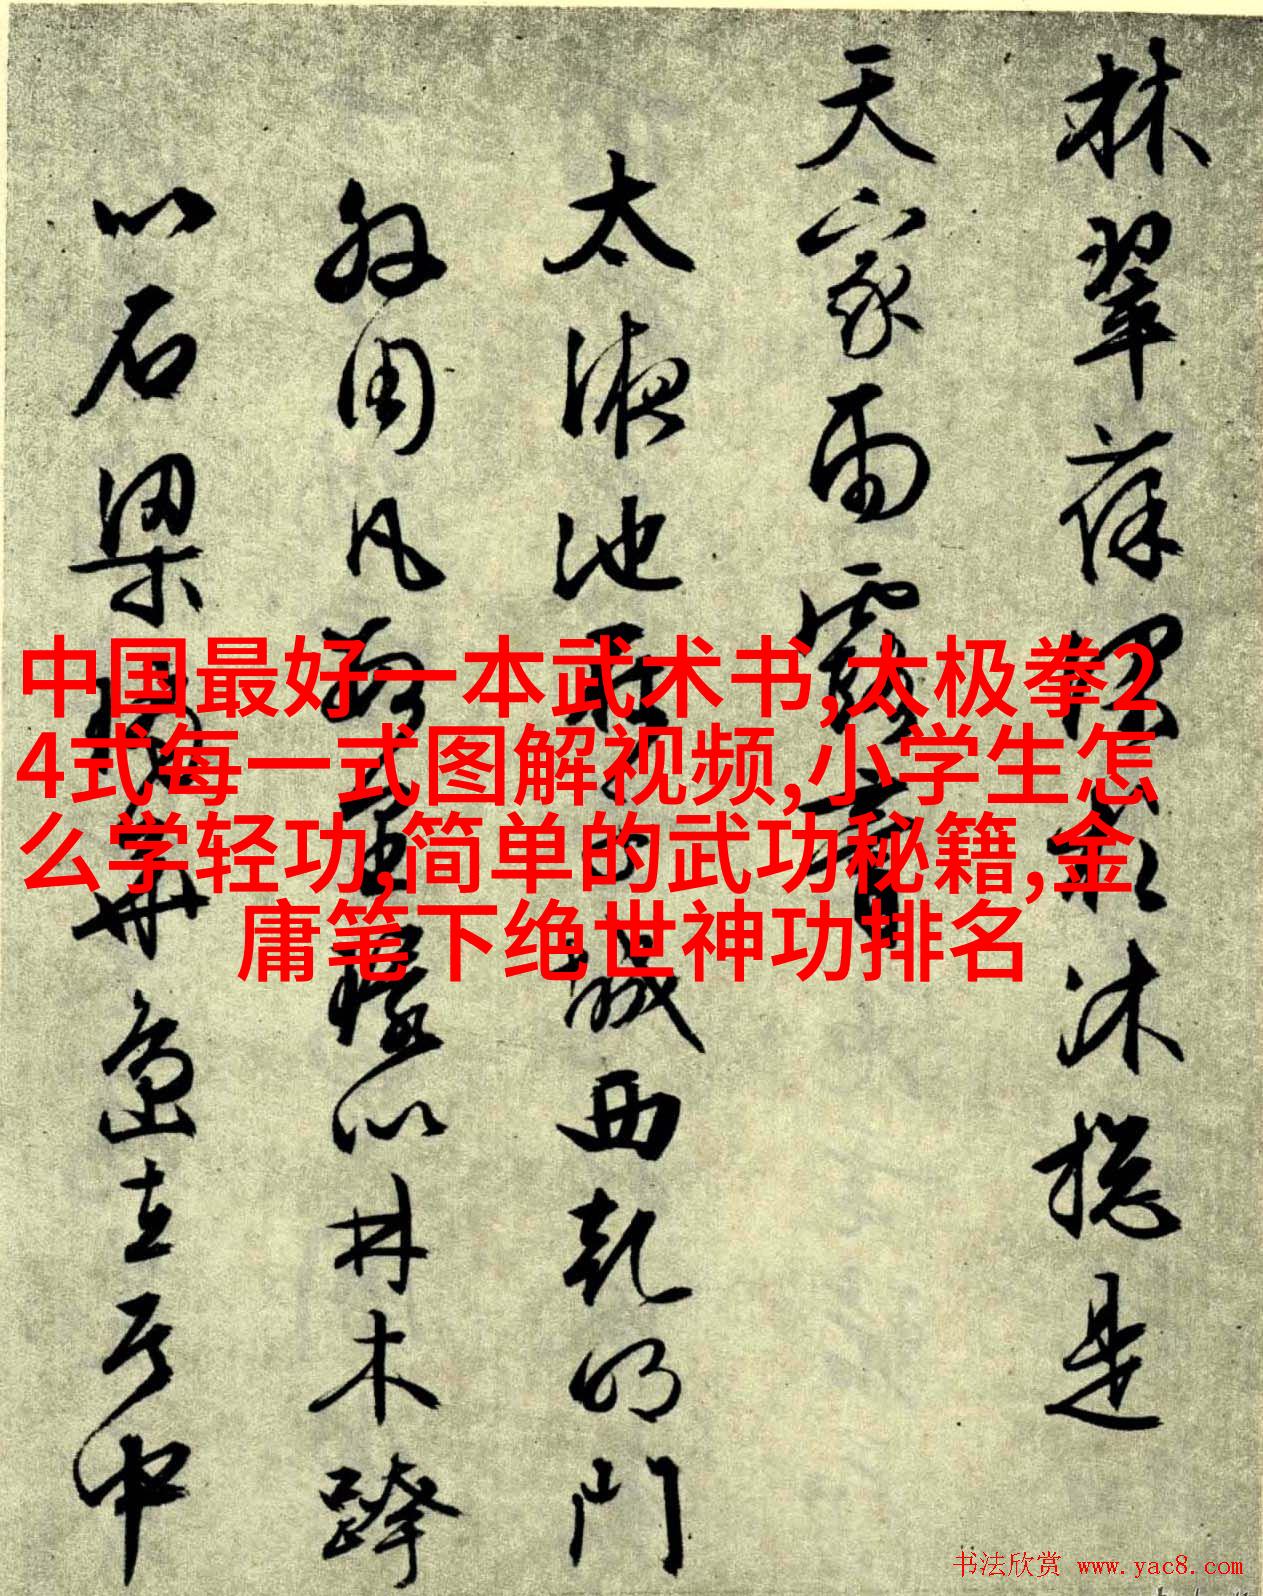 林翠葆沐總是
天家雨露
太液池城西乾明門
外周凡以木跨
以石梁島立其中
中国最好一本武术书,太极拳2
4式每一式图解视频,小学生怎
么学轻功,简单的武功秘籍,金
庸笔下绝世神功排名
书法欣赏 www.yac8.com